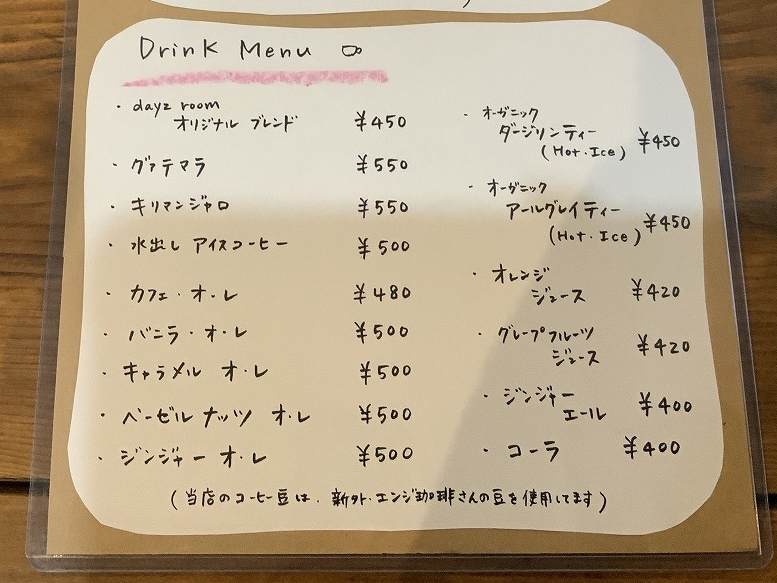 Drink Menu
・dayz room
オリジナル ブレンド ¥450
・グァテマラ ¥550
・キリマンジャロ ¥550
・水出し アイスコーヒー ¥500
・カフェ・オ・レ ¥480
・バニラ・オ・レ ¥500
・キャラメル オ・レ ¥500
・ヘーゼルナッツ オ・レ ¥500
・ジンジャー オ・レ ¥500
・オーガニック
ダージリンティー
(Hot・Ice) ¥450
・オーガニック
アールグレイティー
(Hot・Ice) ¥450
・オレンジ
ジュース ¥420
・グレープフルーツ
ジュース ¥420
・ジンジャー
エール ¥400
・コーラ ¥400
(当店のコーヒー豆は、新タト・エンジ珈琲さんの豆を使用してます)